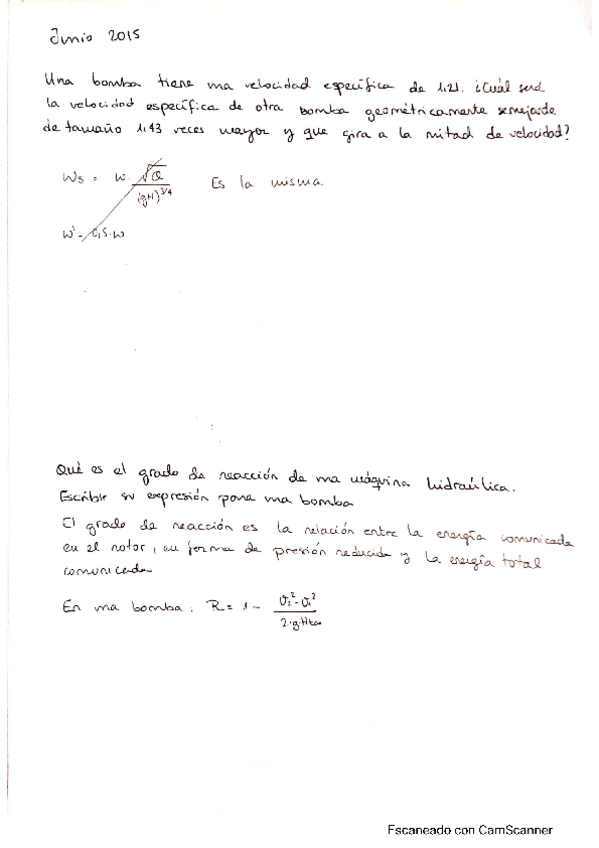 Junio 2015
Una bomba tiene una velocidad específica de 1.21. ¿Cuál será
la velocidad específica de otra bomba geométricamente semejante
de tamaño 1.43 veces mayor y que gira a la mitad de velocidad?
Ws = w · √Q / (gH)^3/4 Es la misma.
w' = 0,5·w
Qué es el grado de reacción de una máquina hidraúlica.
Escribir su expresión para una bomba
El grado de reacción es la relación entre la energía comunicada
en el rotor, en forma de presión reducida y la energía total
comunicada
En una bomba: R = 1 - (v₂² - v₁²) / 2·g·H
Escaneado con CamScanner